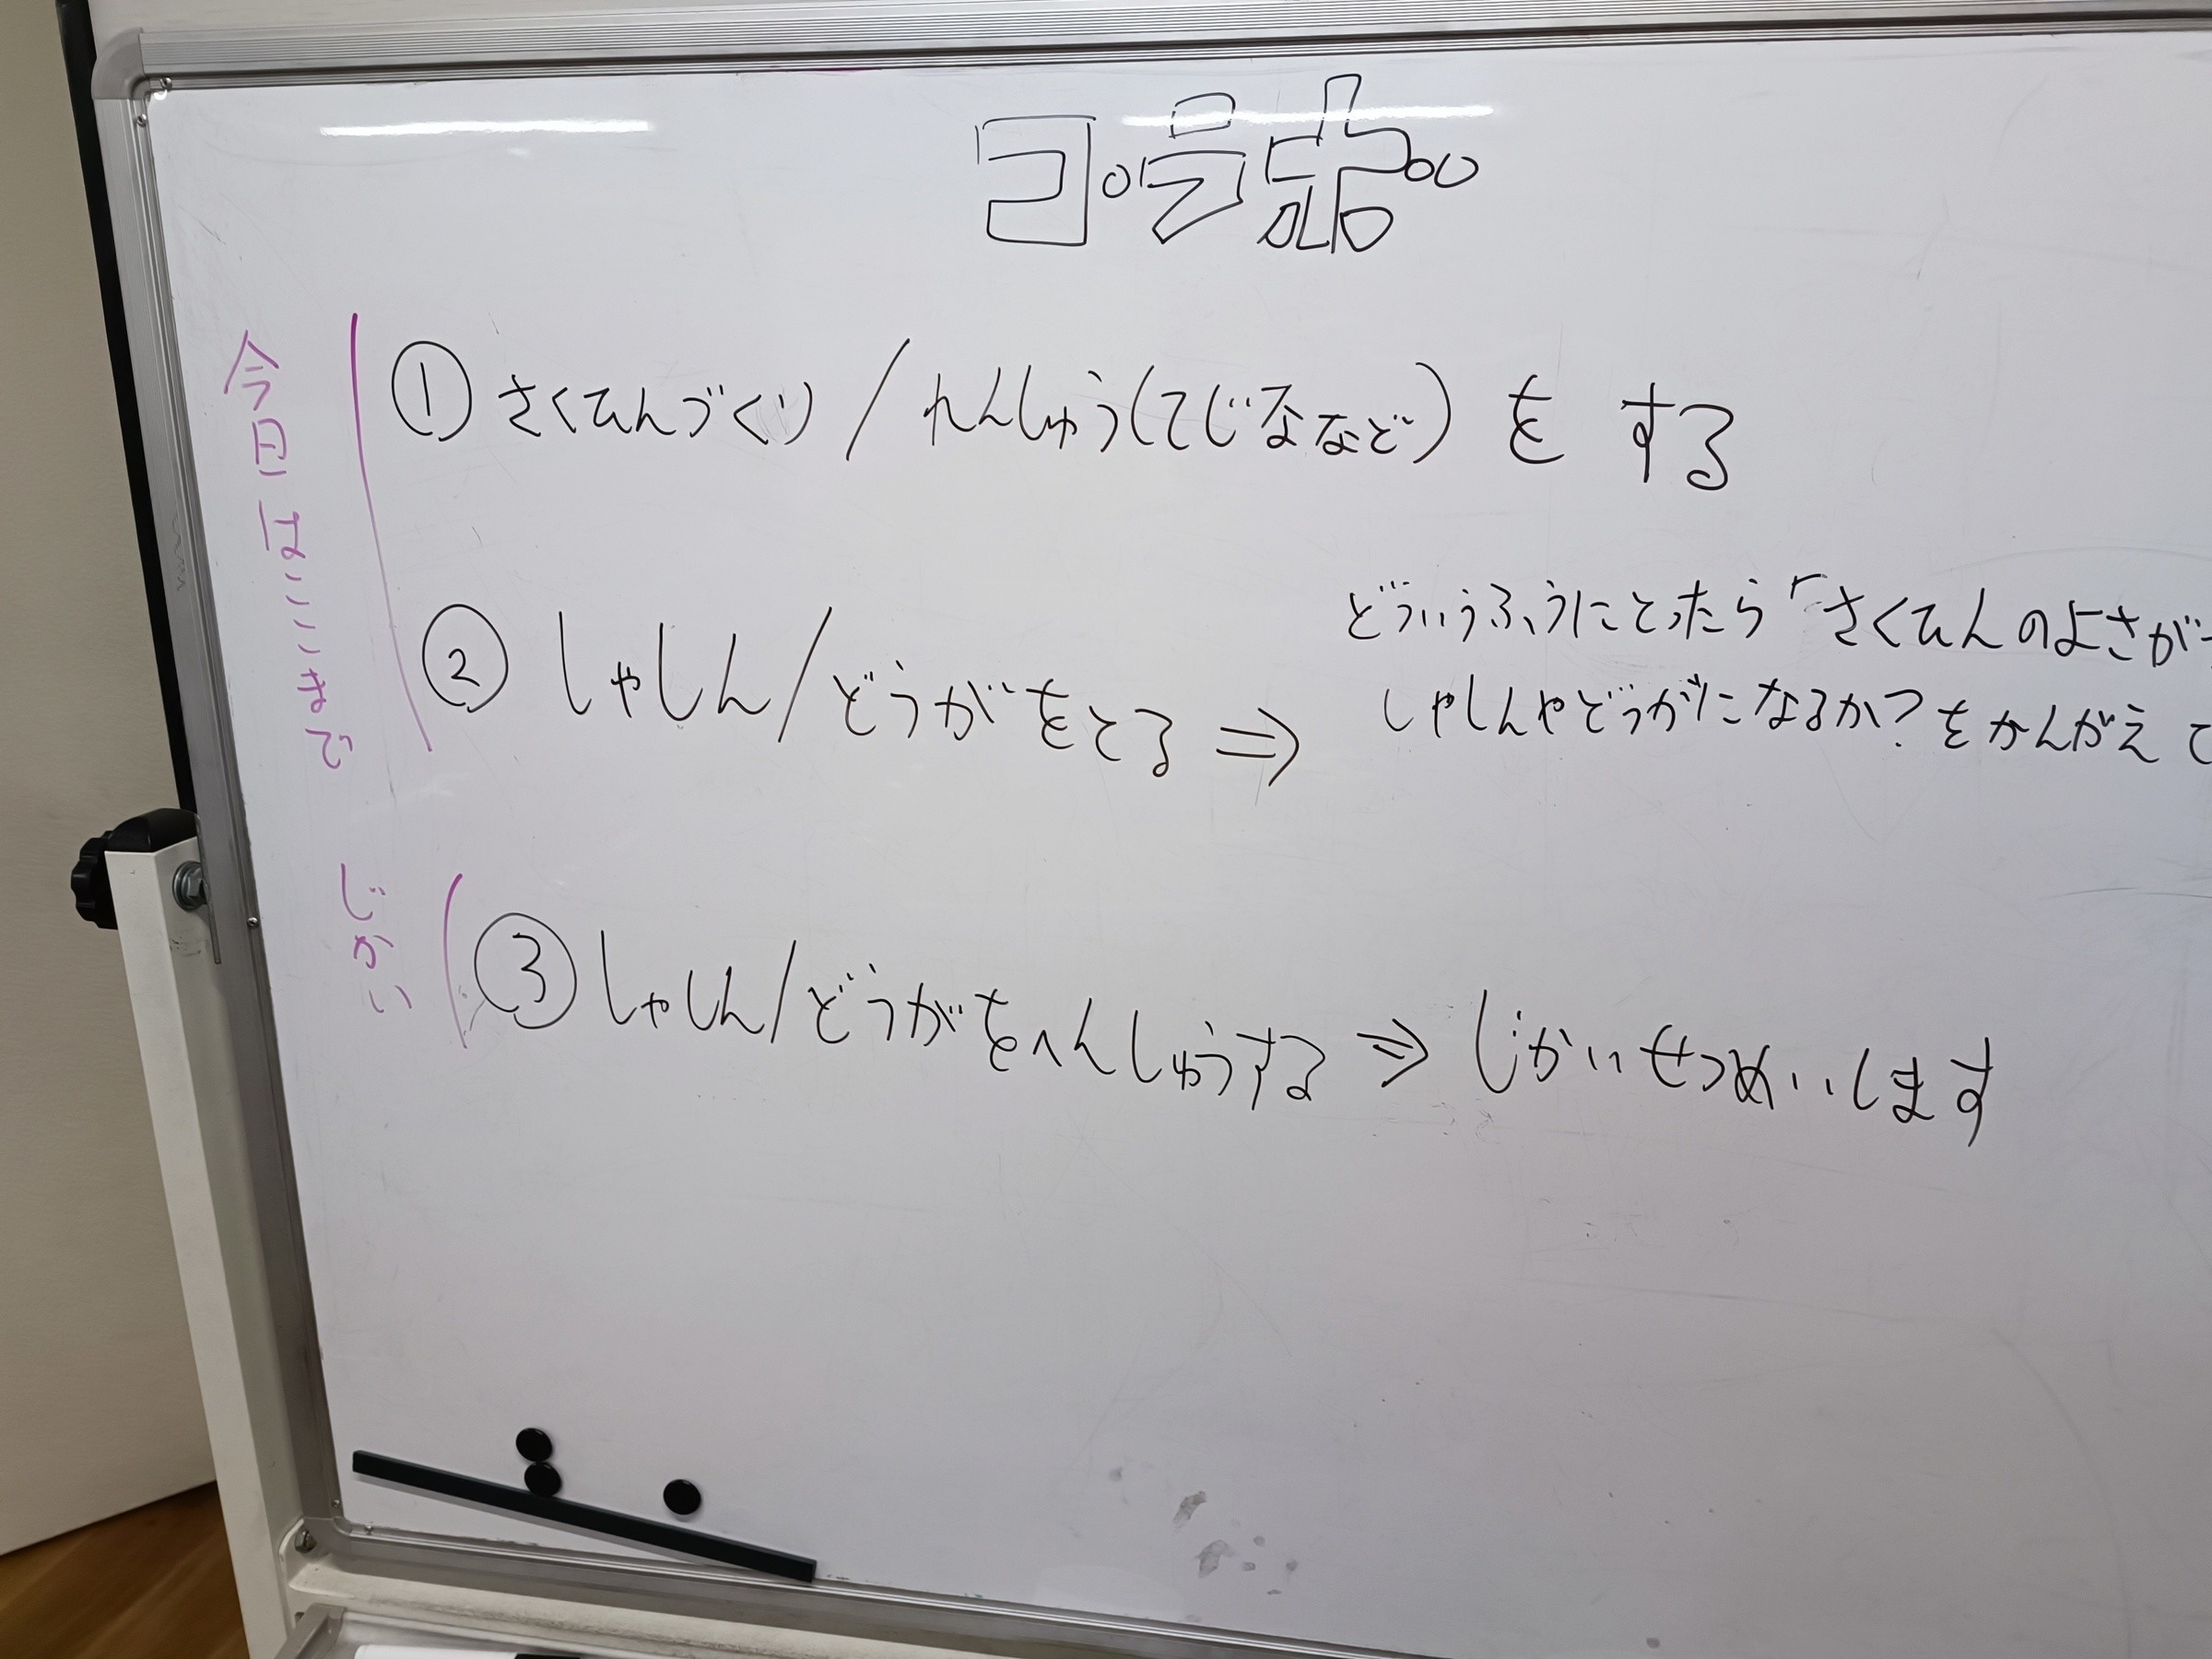 今日はここまで
① さくひんづくり/れんしゅう(てじななど)をする
② しゃしん/どうがをとる⇒
どういうふうにとったら「さくひんのよさが
しゃしんやどうがになるか?をかんがえて
じかい
③ しゃしん/どうがをへんしゅうする⇒じかいせつめいします